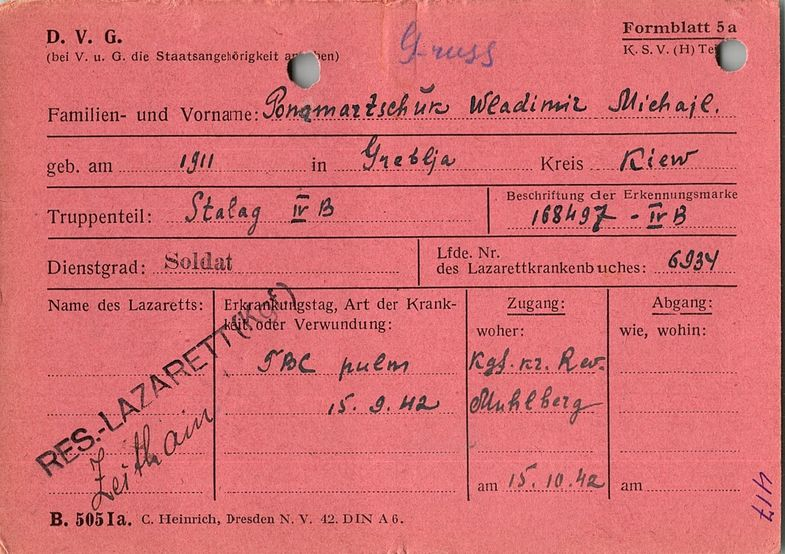 D. V. G.
(bei V. u. G. die Staatsangehörigkeit angeben)
Formblatt 5 a
K. S. V. (H) Te
Familien- und Vorname: Ponamartschuk Wladimir Michajl.
geb. am 1911 in Greblja Kreis Kiew
Truppenteil: Stalag IV B
Beschriftung der Erkennungsmarke
168497 - IV B
Dienstgrad: Soldat
Lfde. Nr.
des Lazarettkrankenbuches: 6934
Name des Lazaretts:
RES.-LAZARETT (Kgf)
Zeithain
Erkrankungstag, Art der Krank-
keit oder Verwundung:
TBC pulm
15. 9. 42
Zugang:
woher:
Kgf. kr. Rev.
Muhlberg
am 15. 10. 42
Abgang:
wie, wohin:
am
417
B. 505 I a. C. Heinrich, Dresden N. V. 42. DIN A 6.